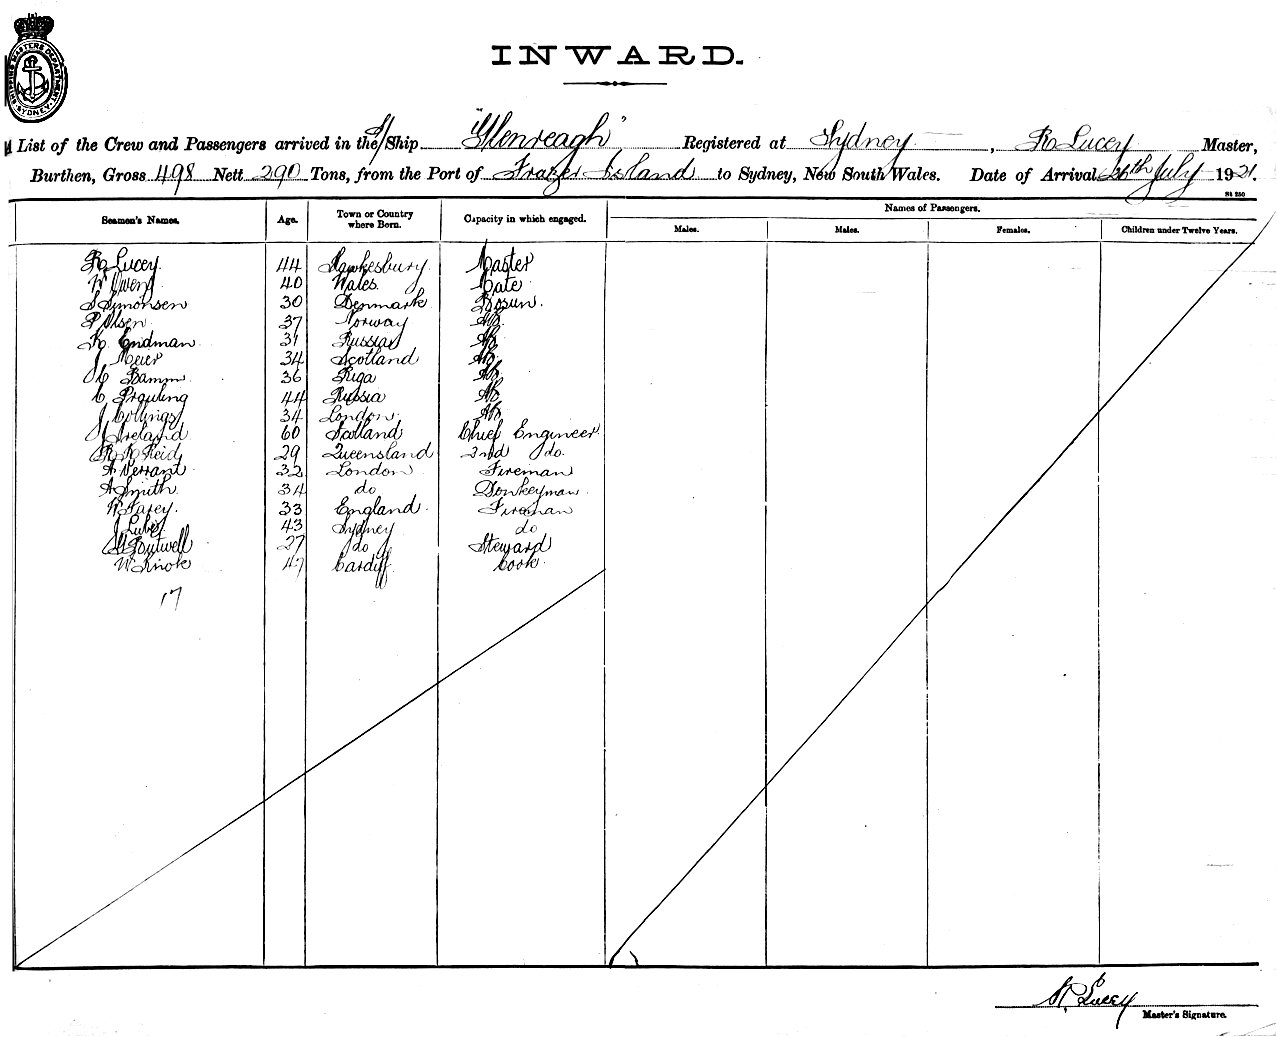 SHIPPING MASTERS DEPARTMENT SYDNEY
INWARD.
List of the Crew and Passengers arrived in the S/Ship "Glenreagh" Registered at Sydney, R Lucey Master,
Burthen, Gross 498 Nett 290 Tons, from the Port of Frazer Island to Sydney, New South Wales. Date of Arrival 26th July 1921.
St 250
Seamen's Names. Age. Town or Country where Born. Capacity in which engaged. Names of Passengers.
Males. Males. Females. Children under Twelve Years.
R Lucey 44 Hawkesbury Master
W Owens 40 Wales Mate
S Simonsen 30 Denmark Bosun.
P Olsen 37 Norway AB
K Endman 31 Russia AB
J Meier 34 Scotland AB
Bamm 36 Riga AB
C Prguling 44 Russia AB
J Collings 34 London AB
J Ireland 60 Scotland Chief Engineer
R R Reid 29 Queensland 2nd do.
A Verrant 32 London Fireman
A Smith 34 do Donkeyman
W Farey. 33 England Fireman
J Lubey 43 Sydney do
Boutwell 27 do Steward
W Knok 47 Cardiff Cook
17
R Lucey
Master's Signature.